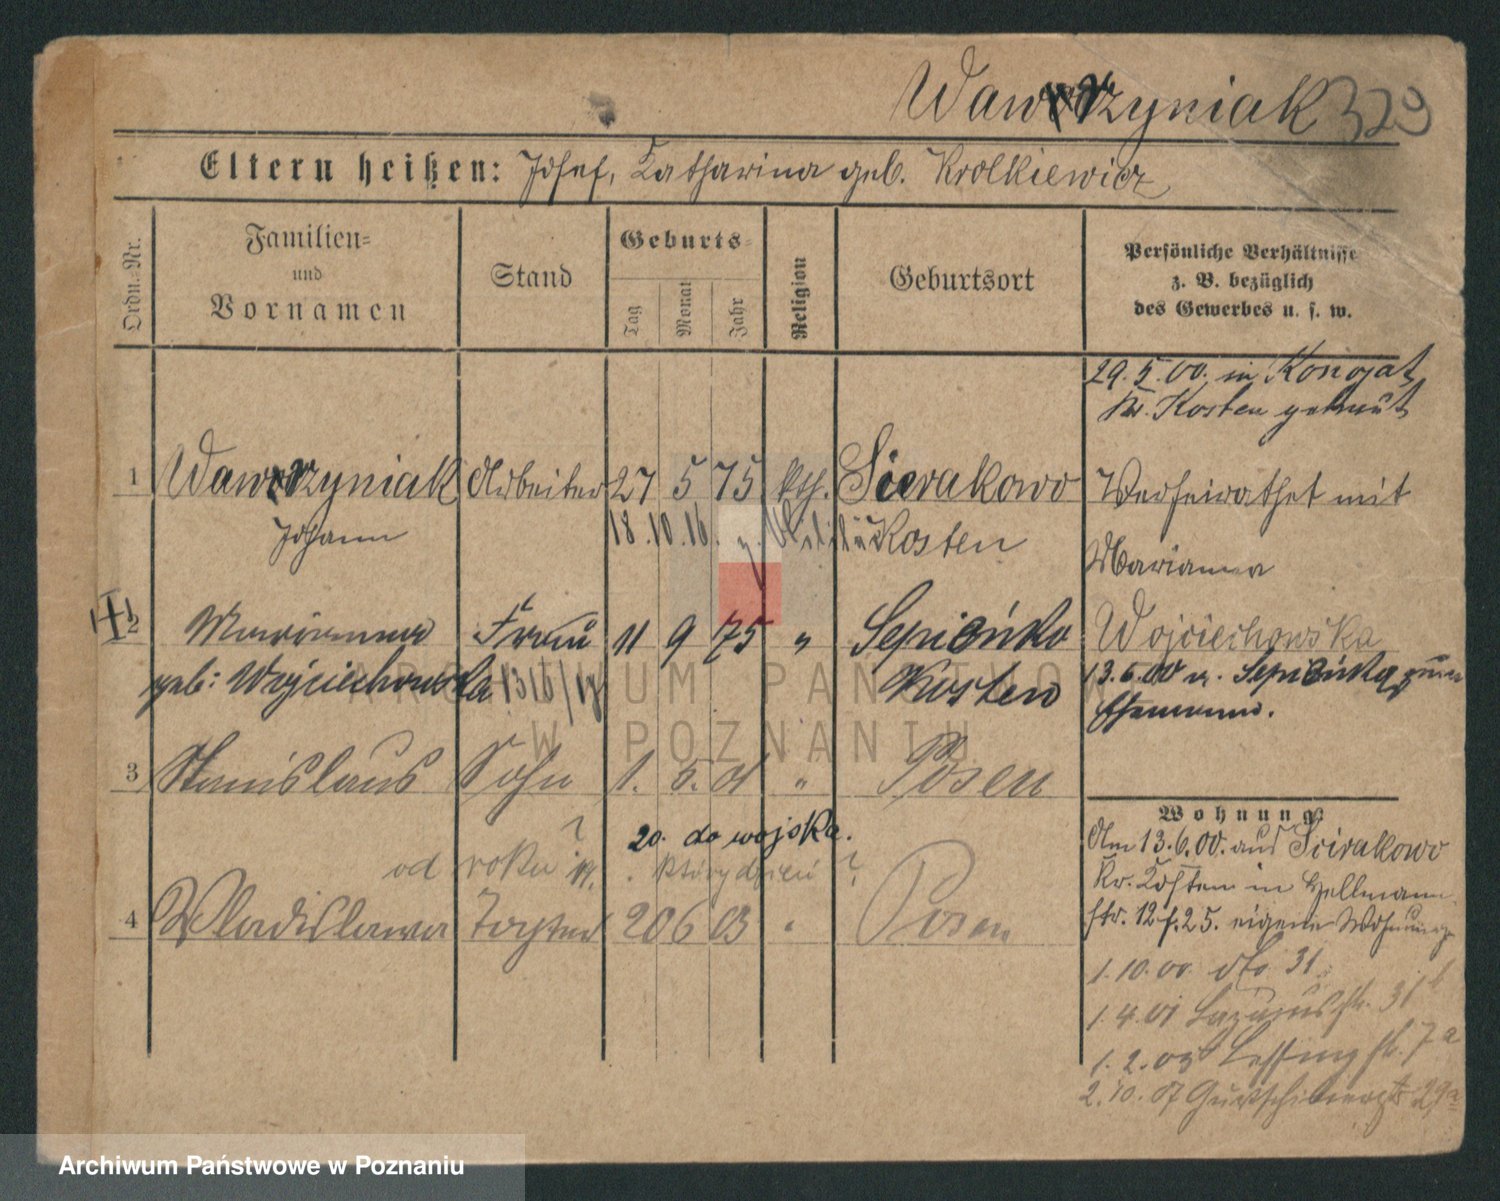 Wawrzyniak 329
Eltern heißen: Josef, Katharina geb. Krolkiewicz
Ordn.-Nr.
Familien-
und
Vornamen
Stand
Geburts-
Tag
Monat
Jahr
Religion
Geburtsort
Persönliche Verhältnisse
z. B. bezüglich
des Gewerbes u. s. w.
29.5.00. in Konojat
Kr. Kosten getraut
1 Wawrzyniak Arbeiter 27 5 75 kth. Sierakowo Verheirathet mit
Johann 18.10.16. z. Militär Kosten
Marianna
2 Marianna Frau 11 9 75 " Sepieńko Wojciechowska
geb: Wojciechowska 1316/18 Kosten 13.6.00 v. Sepieńko zum
Ehemann.
3 Stanislaus Sohn 1. 5. 01 " Posen
20. do wojska.
od roku 19. który dzień ?
4 Wladislawa Tochter 20 6 03 " Posen
Wohnung:
Am 13.6.00. aus Scirakowo
Kr. Kosten in Hellmann
str. 12 f. 25. eigene Wohnung
1.10.00 dto 31
1.4.01 Lazarusstr. 31b
1.2.03 Lessingstr. 7a
2.10.07 29a
ARCHIWUM PAŃSTWOWE
W POZNANIU
Archiwum Państwowe w Poznaniu